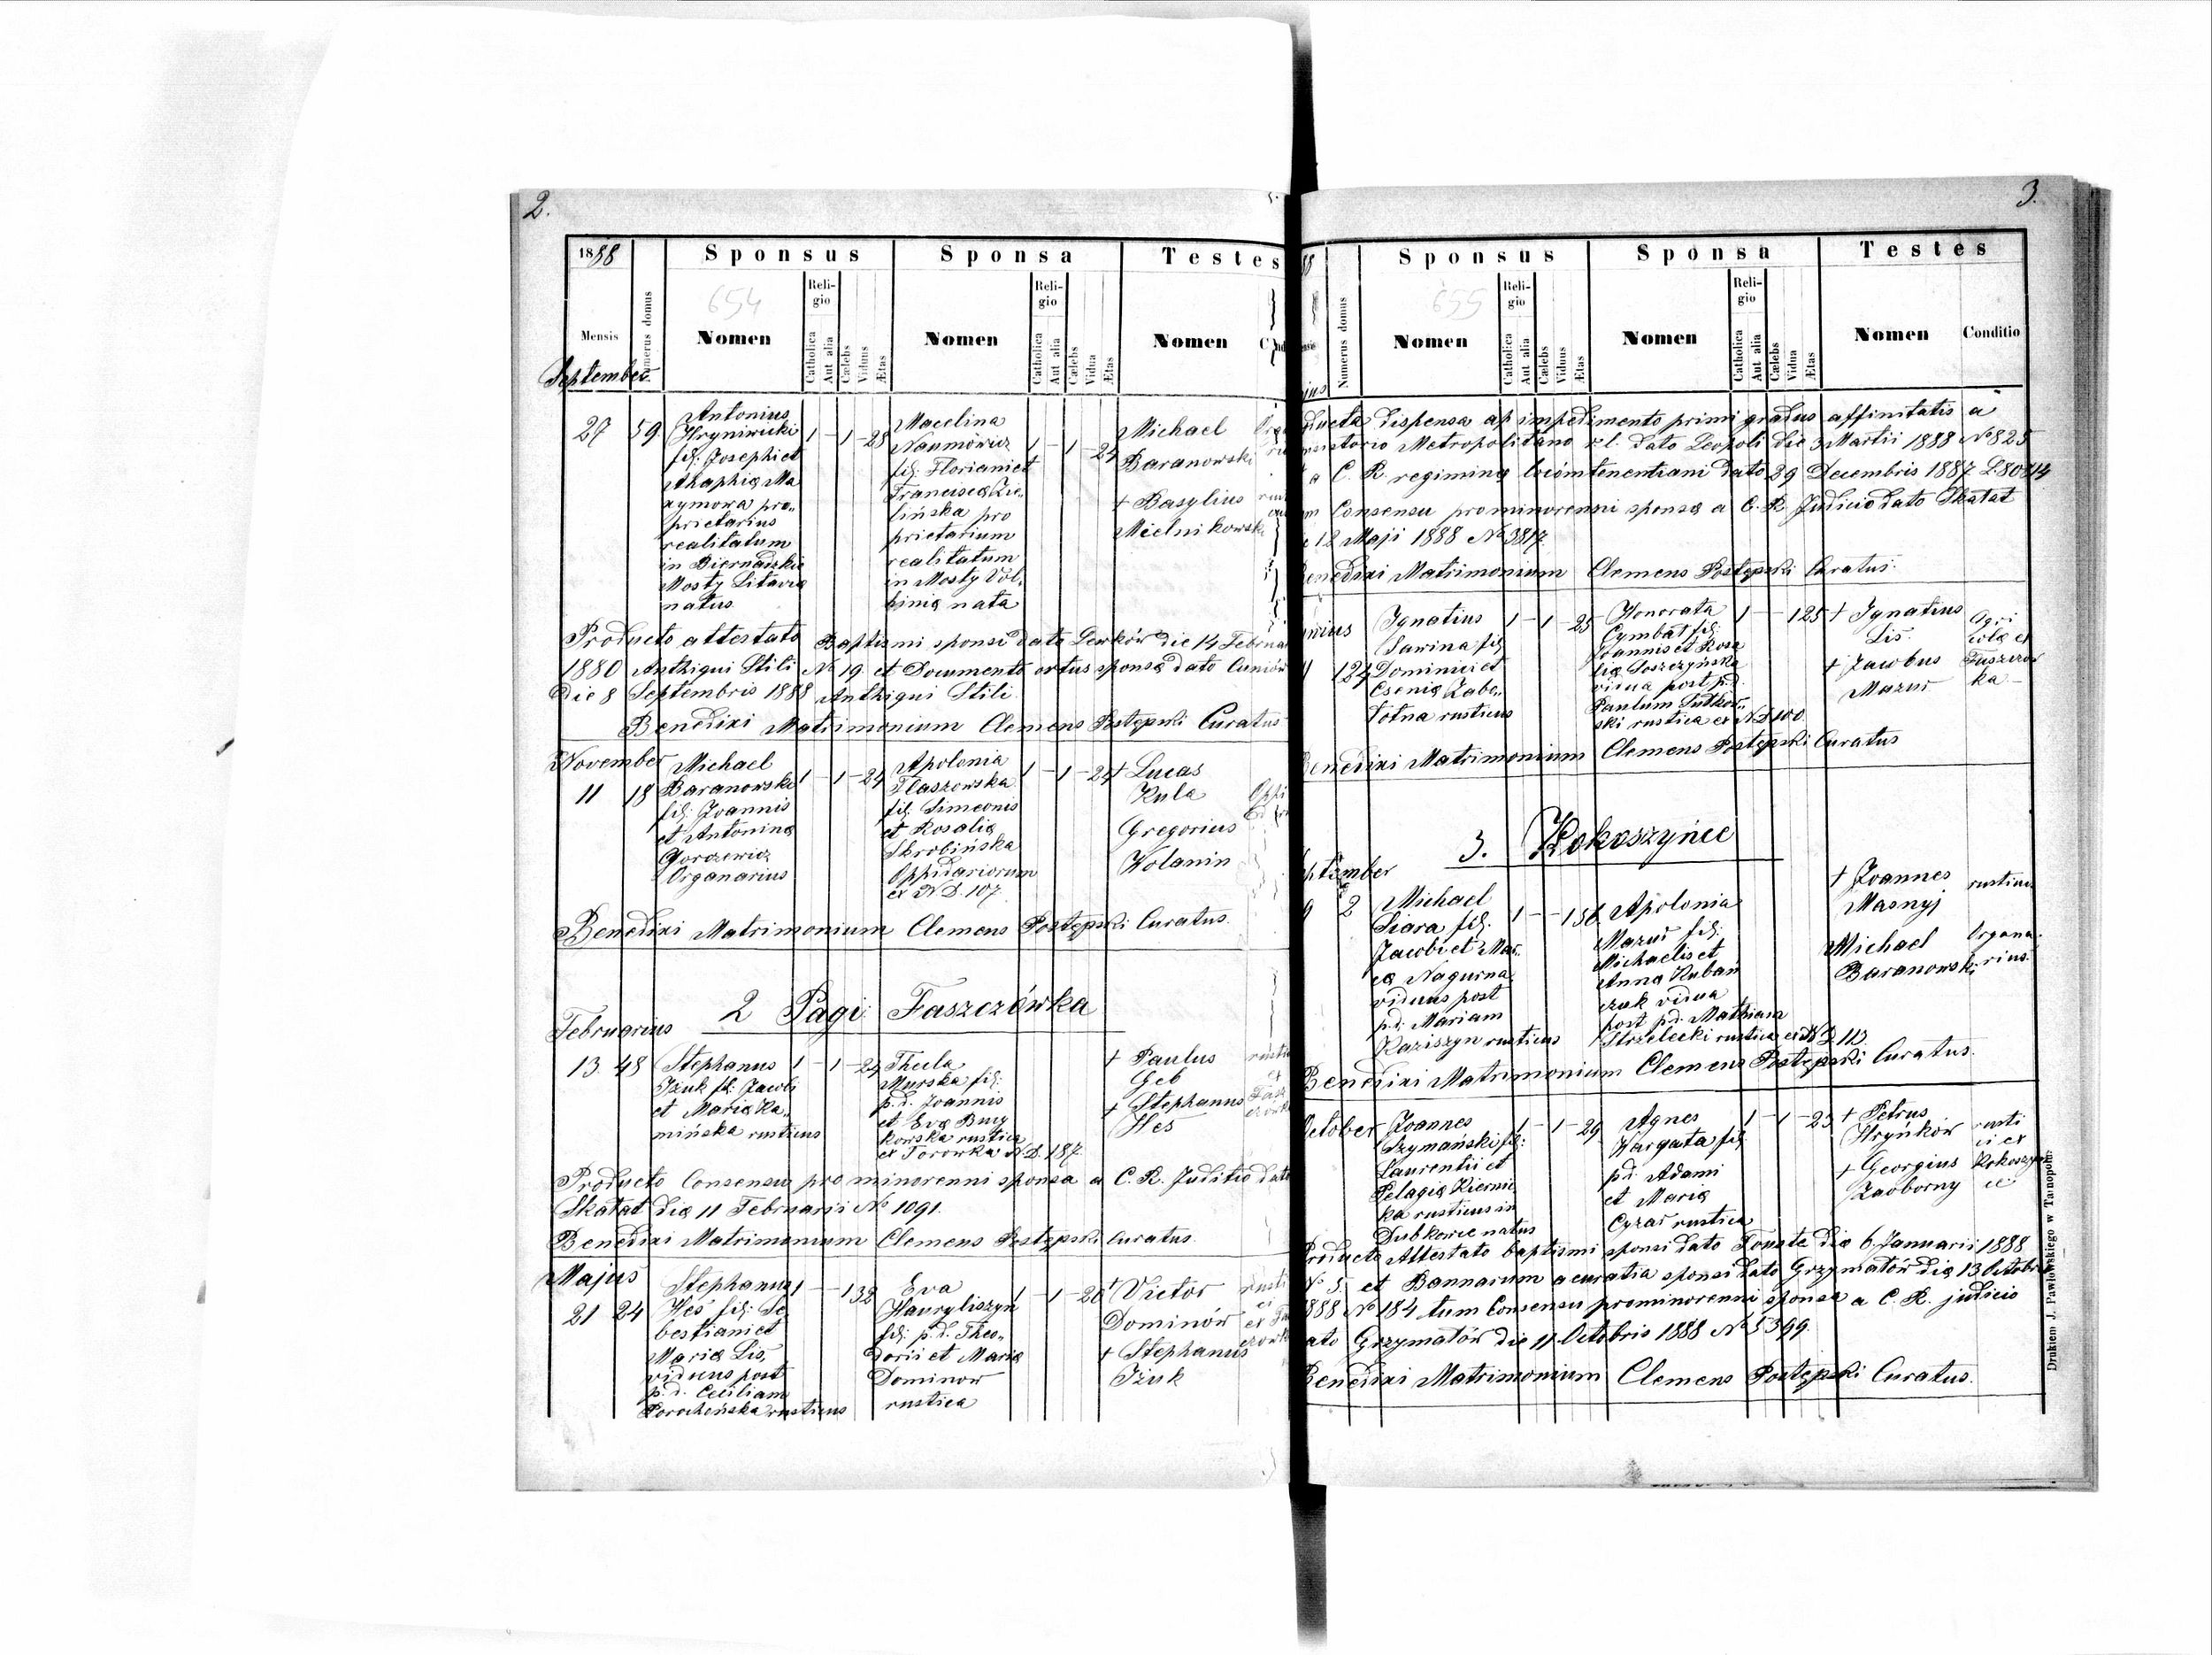 2.
1888
Sponsus
Sponsa
Testes
654
Mensis
Numerus domus
Nomen
Religio
Catholica
Aut alia
Cælebs
Viduus
Ætas
Nomen
Religio
Catholica
Aut alia
Cælebs
Vidua
Ætas
Nomen
September
27 59
Antonius
Hryniwicki
fil: Josephi et
Ahaphiæ Ma
xymowa pro„
prietarius
realitatum
in Biernadzkie
Mosty Litavia
natus
1 – 1 – 28
Macelina
Naumówicz
fil: Floriani et
Franciscæ Zie„
lińska pro
prietarium
realitatum
in Mosty Vol„
hiniæ nata
1 – 1 – 24
Michael
Baranowski
+ Basylius
Mielnikowski
Producto attestato Baptismi sponsi dato Lewków die 14 Februar
1880 Anthiqui Stili № 19. et Documento ortus sponsæ dato Cuniów
Die 8 Septembris 1888 Anthiqui Stili.
Benedixi Matrimonium Clemens Postępski Curatus
November
11 18
Michael
Baranowski
fil: Joannis
et Antoninæ
Gorczewicz
Organarius
1 – 1 – 24
Apolonia
Flaszowska
fil: Simeonis
et Rosaliæ
Skrobińska
Oppidariorum
ex N.D. 107
1 – 1 – 24
+ Lucas
Kula
Gregorius
Wolanin
Benedixi Matrimonium Clemens Postępski Curatus.
2 Pagi Faszczówka
Februarius
13. 48
Stephanus
Iżuk fil: Jacobi
et Mariæ Ka„
mińska rusticus
1 – 1 – 24
Thecla
Murska fil:
p.d. Joannis
et Evæ Bury
kowska rustica
ex Torowka N.D. 187
+ Paulus
Geb
+ Stephanus
Hes
Producto Consensu pro minorenni sponsa a C. R. Juditio dato
Skałat diæ 11 Februarii № 1091.
Benedixi Matrimonium Clemens Postępski Curatus.
Majus
21 24
Stephanus
Hes fil: Se
bestiani et
Mariæ Lis,
viduus post
p.d. Ceciliam
Porocheńska rusticus
1 – – 1 32
Eva
Hawryliszyn
fil: p.d. Theo„
dorii et Mariæ
Dominow
rustica
1 – 1 – 20
+ Victor
Dominów
+ Stephanus
Iżuk
3.
Sponsus
Sponsa
Testes
655
Numerus domus
Nomen
Religio
Catholica
Aut alia
Cælebs
Viduus
Ætas
Nomen
Religio
Catholica
Aut alia
Cælebs
Vidua
Ætas
Nomen
Conditio
ducta dispensa ab impedimento primi gradus affinitatis a
nsistorio Metropolitano r.l. dato Leopoli die 3 Martii 1888 № 825
a C. R. regiminæ locúmtenentiani dato 29 Decembris 1887 L. 80814
m Consensu pro minorenni sponsæ a C. R Judicio dato Skałat
e 12 Maji 1888 № 3817.
Benedixi Matrimonium Clemens Postępski Curatus.
124
Ignatius
Sawina fil
Dominici et
Eseniæ Zabo„
łotna rusticus
1 – 1 – 25
Honorata
Cymbał fil:
Joannis et Rosa
liæ Soszczyńska
vidua post p.d.
Paulum Sutkow„
ski rustica ex N.D 100
1 – – 1 25
+ Ignatius
Lis.
+ Jacobus
Mazur
Agri
colæ ex
Faszczów
ka
Benedixi Matrimonium Clemens Postępski Curatus
3. Kokoszyńce
ptember
9 2
Michael
Siara fil:
Jacobi et Mar„
iæ Nagurna
viduus post
p.d. Mariam
Kaziszyn rusticus
1 – – 1 56
Apolonia
Mazur fil:
Michaelis et
Anna Kubań
czuk vidua
post p.d. Mathiam
Strzelecki rustica ex N D 113.
+ Joannes
Masnyj
Michael
Baranowski
rusticus
Organa„
rius
Benedixi Matrimonium Clemens Postępski Curatus.
October
Joannes
Szymański fil:
Laurentii et
Pelagiæ Kierni„
ka rusticus in
Dubkowce natus
1 – 1 – 29
Agnes
Wargata fil
p.d. Adami
et Mariæ
Cyzar rustica
1 – 1 – 23
+ Petrus
Hryńków
+ Georgius
Zaoborny
rusti
ci ex
Kokoszyń
ce
Producto Attestato baptismi sponsi dato Touste diæ 6. Januarii 1888
№ 5. et Bannarum a curatia sponsi dato Grzymałów diæ 13 Octobris
1888 № 184 tum Consensu pro minorenni sponsa a C. R. judicio
dato Grzymałów die 11 Octobris 1888 № 5399.
Benedixi Matrimonium Clemens Postępski Curatus.
Drukiem J. Pawłowskiego w Tarnopolu.